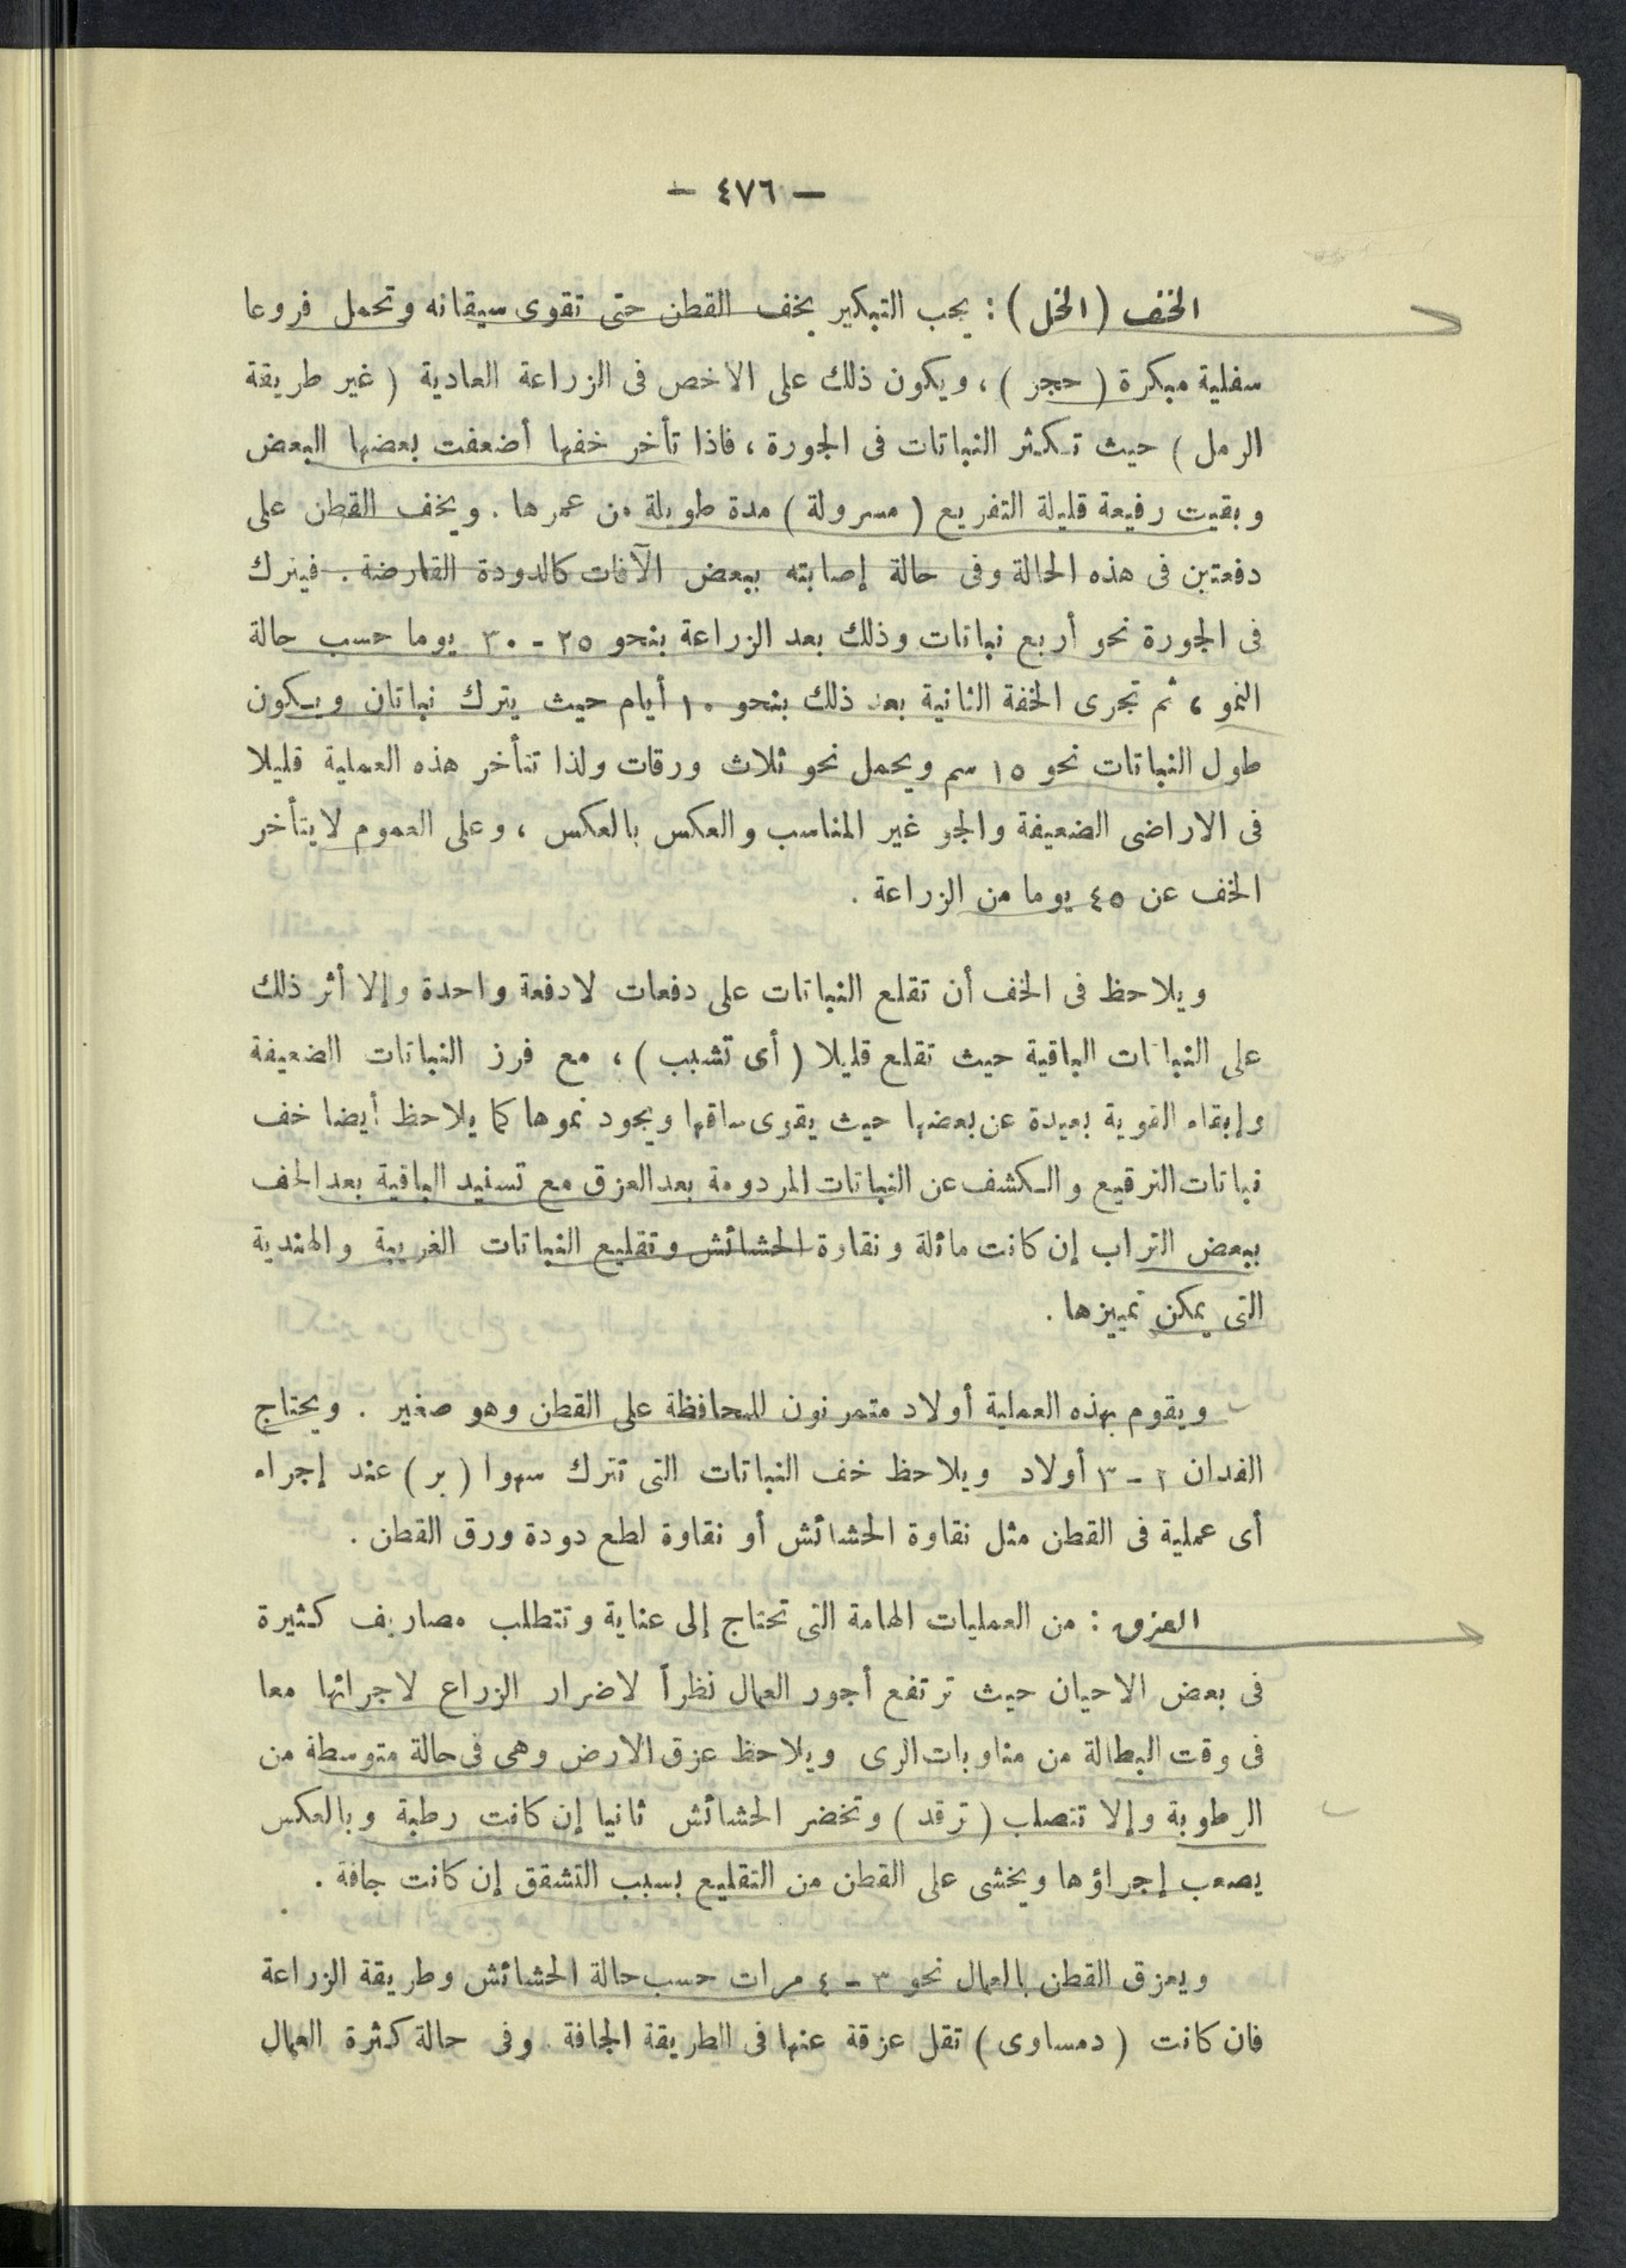 — ٤٧٦ —
الخف (الخل) : يجب التبكير بخف القطن حتى تقوى سيقانه وتحمل فروعا
سفلية مبكرة ( حجر ) ، ويكون ذلك على الاخص فى الزراعة العادية ( غير طريقة
الرمل ) حيث تكثر النباتات فى الجورة ، فاذا تأخر خفها أضعفت بعضها البعض
وبقيت رفيعة قليلة التفريع ( مسرولة ) مدة طويلة من عمرها . ويخف القطن على
دفعتين فى هذه الحالة وفى حالة إصابته ببعض الآفات كالدودة القارضة . فيترك
فى الجورة نحو أربع نباتات وذلك بعد الزراعة بنحو ٢٥ - ٣٠ يوما حسب حالة
النمو ، ثم تجرى الخفة الثانية بعد ذلك بنحو ١٠ أيام حيث يترك نباتان ويكون
طول النباتات نحو ١٥ سم ويحمل نحو ثلاث ورقات ولذا تتأخر هذه العملية قليلا
فى الاراضى الضعيفة والجو غير المناسب والعكس بالعكس ، وعلى العموم لايتأخر
الخف عن ٤٥ يوما من الزراعة .
ويلاحظ فى الخف أن تقلع النباتات على دفعات لادفعة واحدة وإلا أثر ذلك
على النباتات الباقية حيث تقلع قليلا ( أى تشبب ) ، مع فرز النباتات الضعيفة
وإبقاء القوية بعيدة عن بعضها حيث يقوى ساقها ويجود نموها كما يلاحظ أيضا خف
نباتات الترقيع والكشف عن النباتات المردومة بعد العزق مع تسنيد الباقية بعد الخف
ببعض التراب إن كانت مائلة ونقاوة الحشائش وتقليع النباتات الغريبة والهندية
التى يمكن تمييزها .
ويقوم بهذه العملية أولاد متمرنون للمحافظة على القطن وهو صغير . ويحتاج
الفدان ٢ - ٣ أولاد ويلاحظ خف النباتات التى تترك سهوا ( بر ) عند إجراء
أى عملية فى القطن مثل نقاوة الحشائش أو نقاوة لطع دودة ورق القطن .
العزق : من العمليات الهامة التى تحتاج إلى عناية وتتطلب مصاريف كثيرة
فى بعض الاحيان حيث ترتفع أجور العمال نظراً لاضرار الزراع لاجرائها معا
فى وقت البطالة من مناوبات الرى ويلاحظ عزق الارض وهى فى حالة متوسطة من
الرطوبة وإلا تتصلب ( ترقد ) وتخضر الحشائش ثانيا إن كانت رطبة وبالعكس
يصعب إجراؤها ويخشى على القطن من التقليع بسبب التشقق إن كانت جافة .
ويعزق القطن بالعمال نحو ٣ - ٤ مرات حسب حالة الحشائش وطريقة الزراعة
فان كانت ( دمساوى ) تقل عزقة عنها فى الطريقة الجافة . وفى حالة كثرة العمال